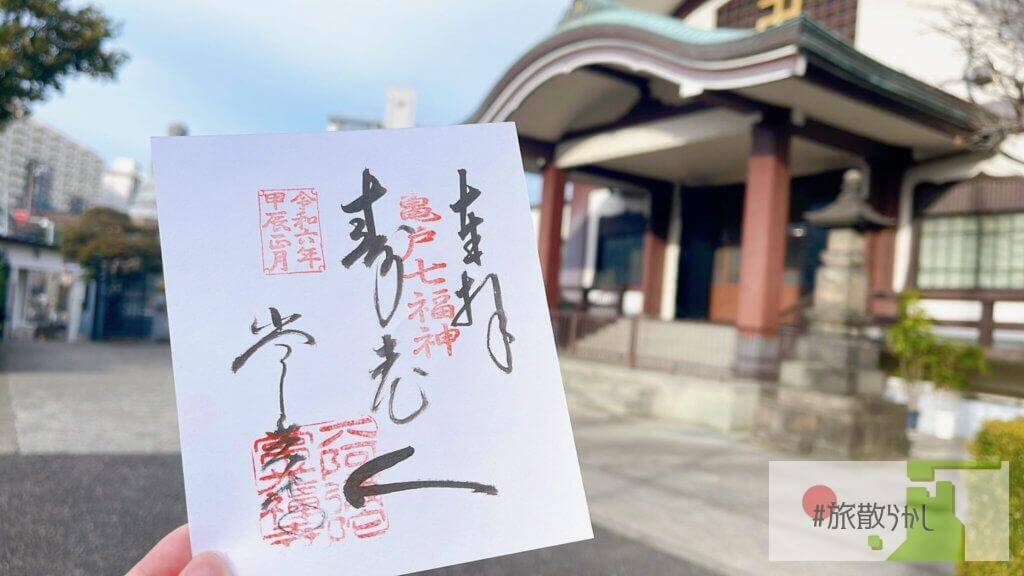 奉拝
亀戸七福神
寿老人
令和六年
甲辰正月
常光寺
#旅散らかし